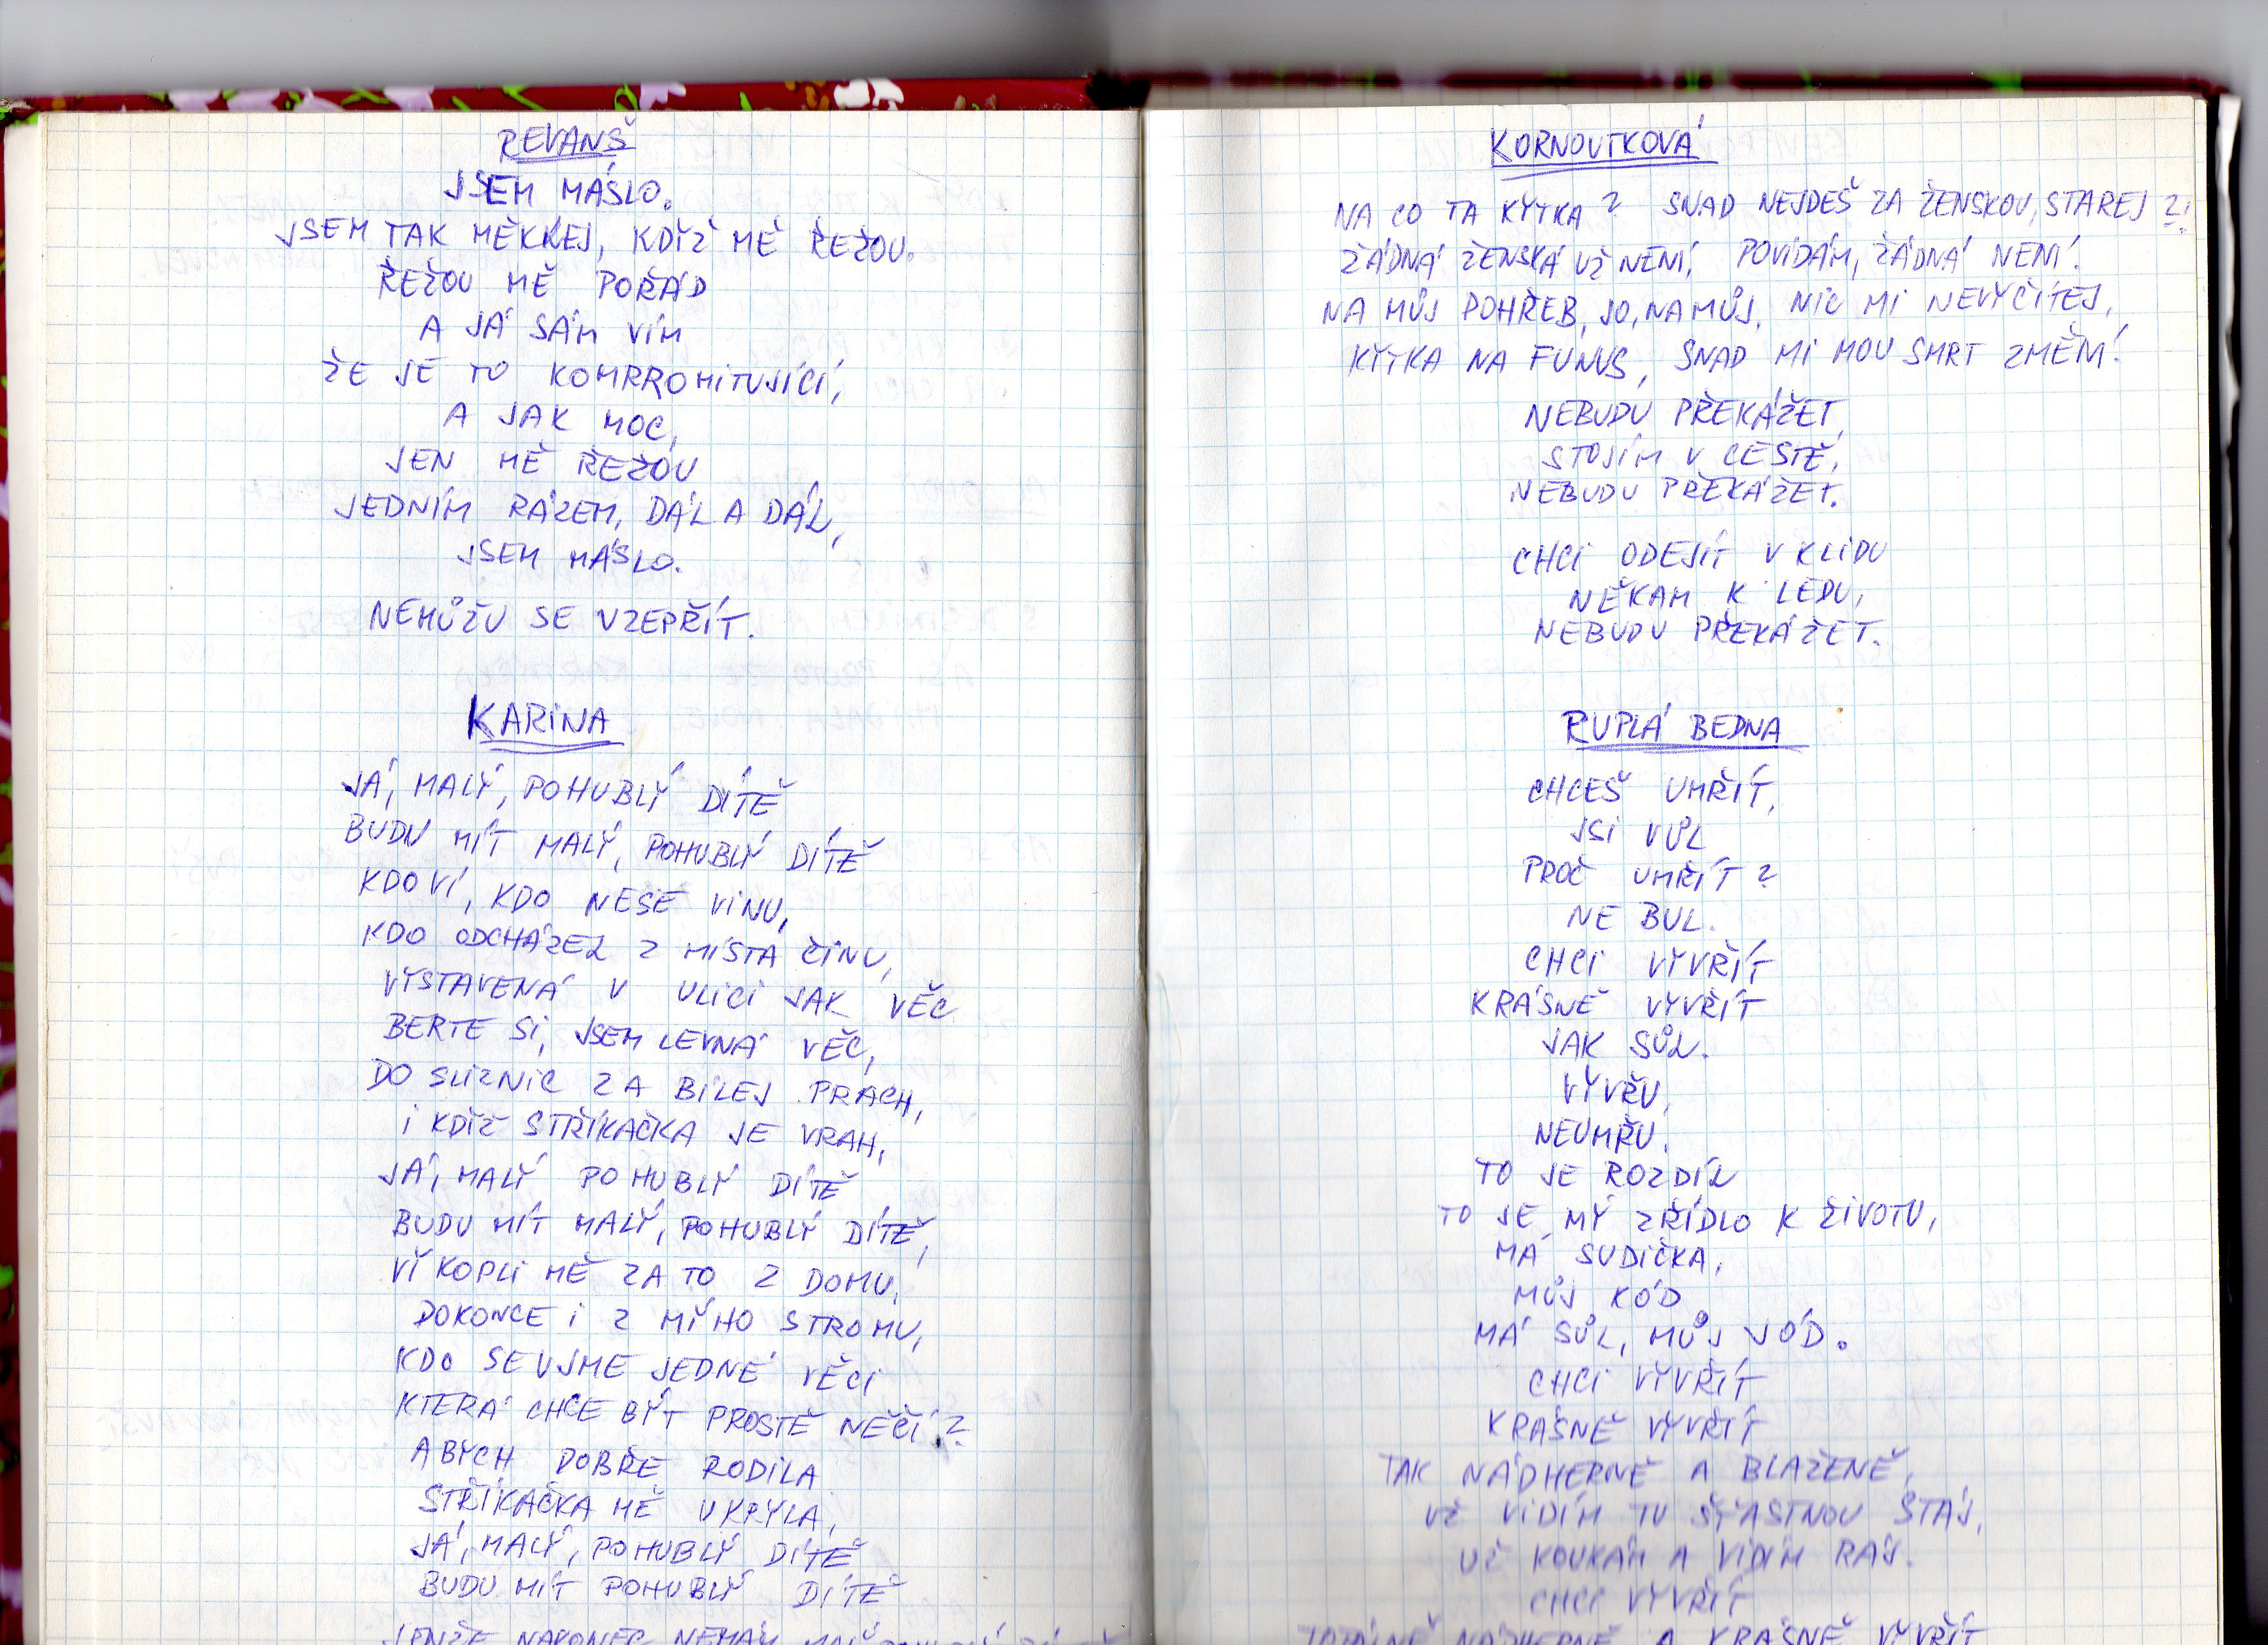 REVANŠ
JSEM MÁSLO.
JSEM TAK MĚKKEJ, KDIŽ MĚ ŘEŽOU.
ŘEŽOU MĚ POŘÁD
A JÁ SÁM VÍM
ŽE JE TO KOMRROMITUJÍCÍ,
A JAK MOC,
JEN MĚ ŘEŽOU
JEDNÍM RÁZEM, DÁL A DÁL,
JSEM MÁSLO.
NEMŮŽU SE VZEPŘÍT.
KARINA
JÁ, MALÝ, POHUBLÝ DÍTĚ
BUDU MÍT MALÝ, POHUBLÝ DÍTĚ
KDOVÍ, KDO NESE VINU,
KDO ODCHÁZEL Z MÍSTA ČINU,
VYSTAVENÁ V ULICI JAK VĚC
BERTE SI, JSEM LEVNÁ VĚC,
DO SLIZNIC ZA BÍLEJ PRACH,
I KDIŽ STŘÍKAČKA JE VRAH,
JÁ, MALÝ POHUBLÝ DÍTĚ
BUDU MÍT MALÝ, POHUBLÝ DÍTĚ,
VIKOPLI MĚ ZA TO Z DOMU,
DOKONCE I Z MÝHO STROMU,
KDO SE UJME JEDNÉ VĚCI
KTERÁ CHCE BÝT PROSTĚ NĚČÍ?
ABYCH DOBŘE RODILA
STŘÍKAČKA MĚ UKRYLA,
JÁ, MALÝ, POHUBLÝ DÍTĚ
BUDU MÍT POHUBLÝ DÍTĚ
JENŽE NAKONEC NEMÁM
KORNOUTKOVÁ
NA CO TA KYTKA? SNAD NEJDEŠ ZA ŽENSKOU, STAREJ?!
ŽÁDNÁ ŽENSKÁ UŽ NENÍ, POVÍDÁM, ŽÁDNÁ NENÍ.
NA MŮJ POHŘEB, JO, NA MŮJ, NIC MI NEVYČÍTEJ,
KYTKA NA FUNUS, SNAD MI MOU SMRT ZMĚNÍ.
NEBUDU PŘEKÁŽET,
STOJÍM V CESTĚ,
NEBUDU PŘEKÁŽET.
CHCI ODEJÍT V KLIDU
NĚKAM K LEDU,
NEBUDU PŘEKÁŽET.
RUPLÁ BEDNA
CHCEŠ UMŘÍT,
JSI VŮL
PROČ UMŘÍT?
NE BUL.
CHCI VYVŘÍT
KRÁSNĚ VYVŘÍT
JAK SŮL.
VYVŘU,
NEUMŘU.
TO JE ROZDÍL
TO JE MÝ ZŘÍDLO K ŽIVOTU,
MÁ SUDIČKA,
MŮJ KÓD
MÁ SŮL, MŮJ JÓD.
CHCI VYVŘÍT
KRÁSNĚ VYVŘÍT
TAK NÁDHERNĚ A BLAŽENĚ,
UŽ VIDÍM TU ŠŤASTNOU STÁJ,
UŽ KOUKÁM A VIDÍM RÁJ.
CHCI VYVŘÍT
TOTÁLNĚ NÁDHERNĚ A KRÁSNĚ VYVŘÍT